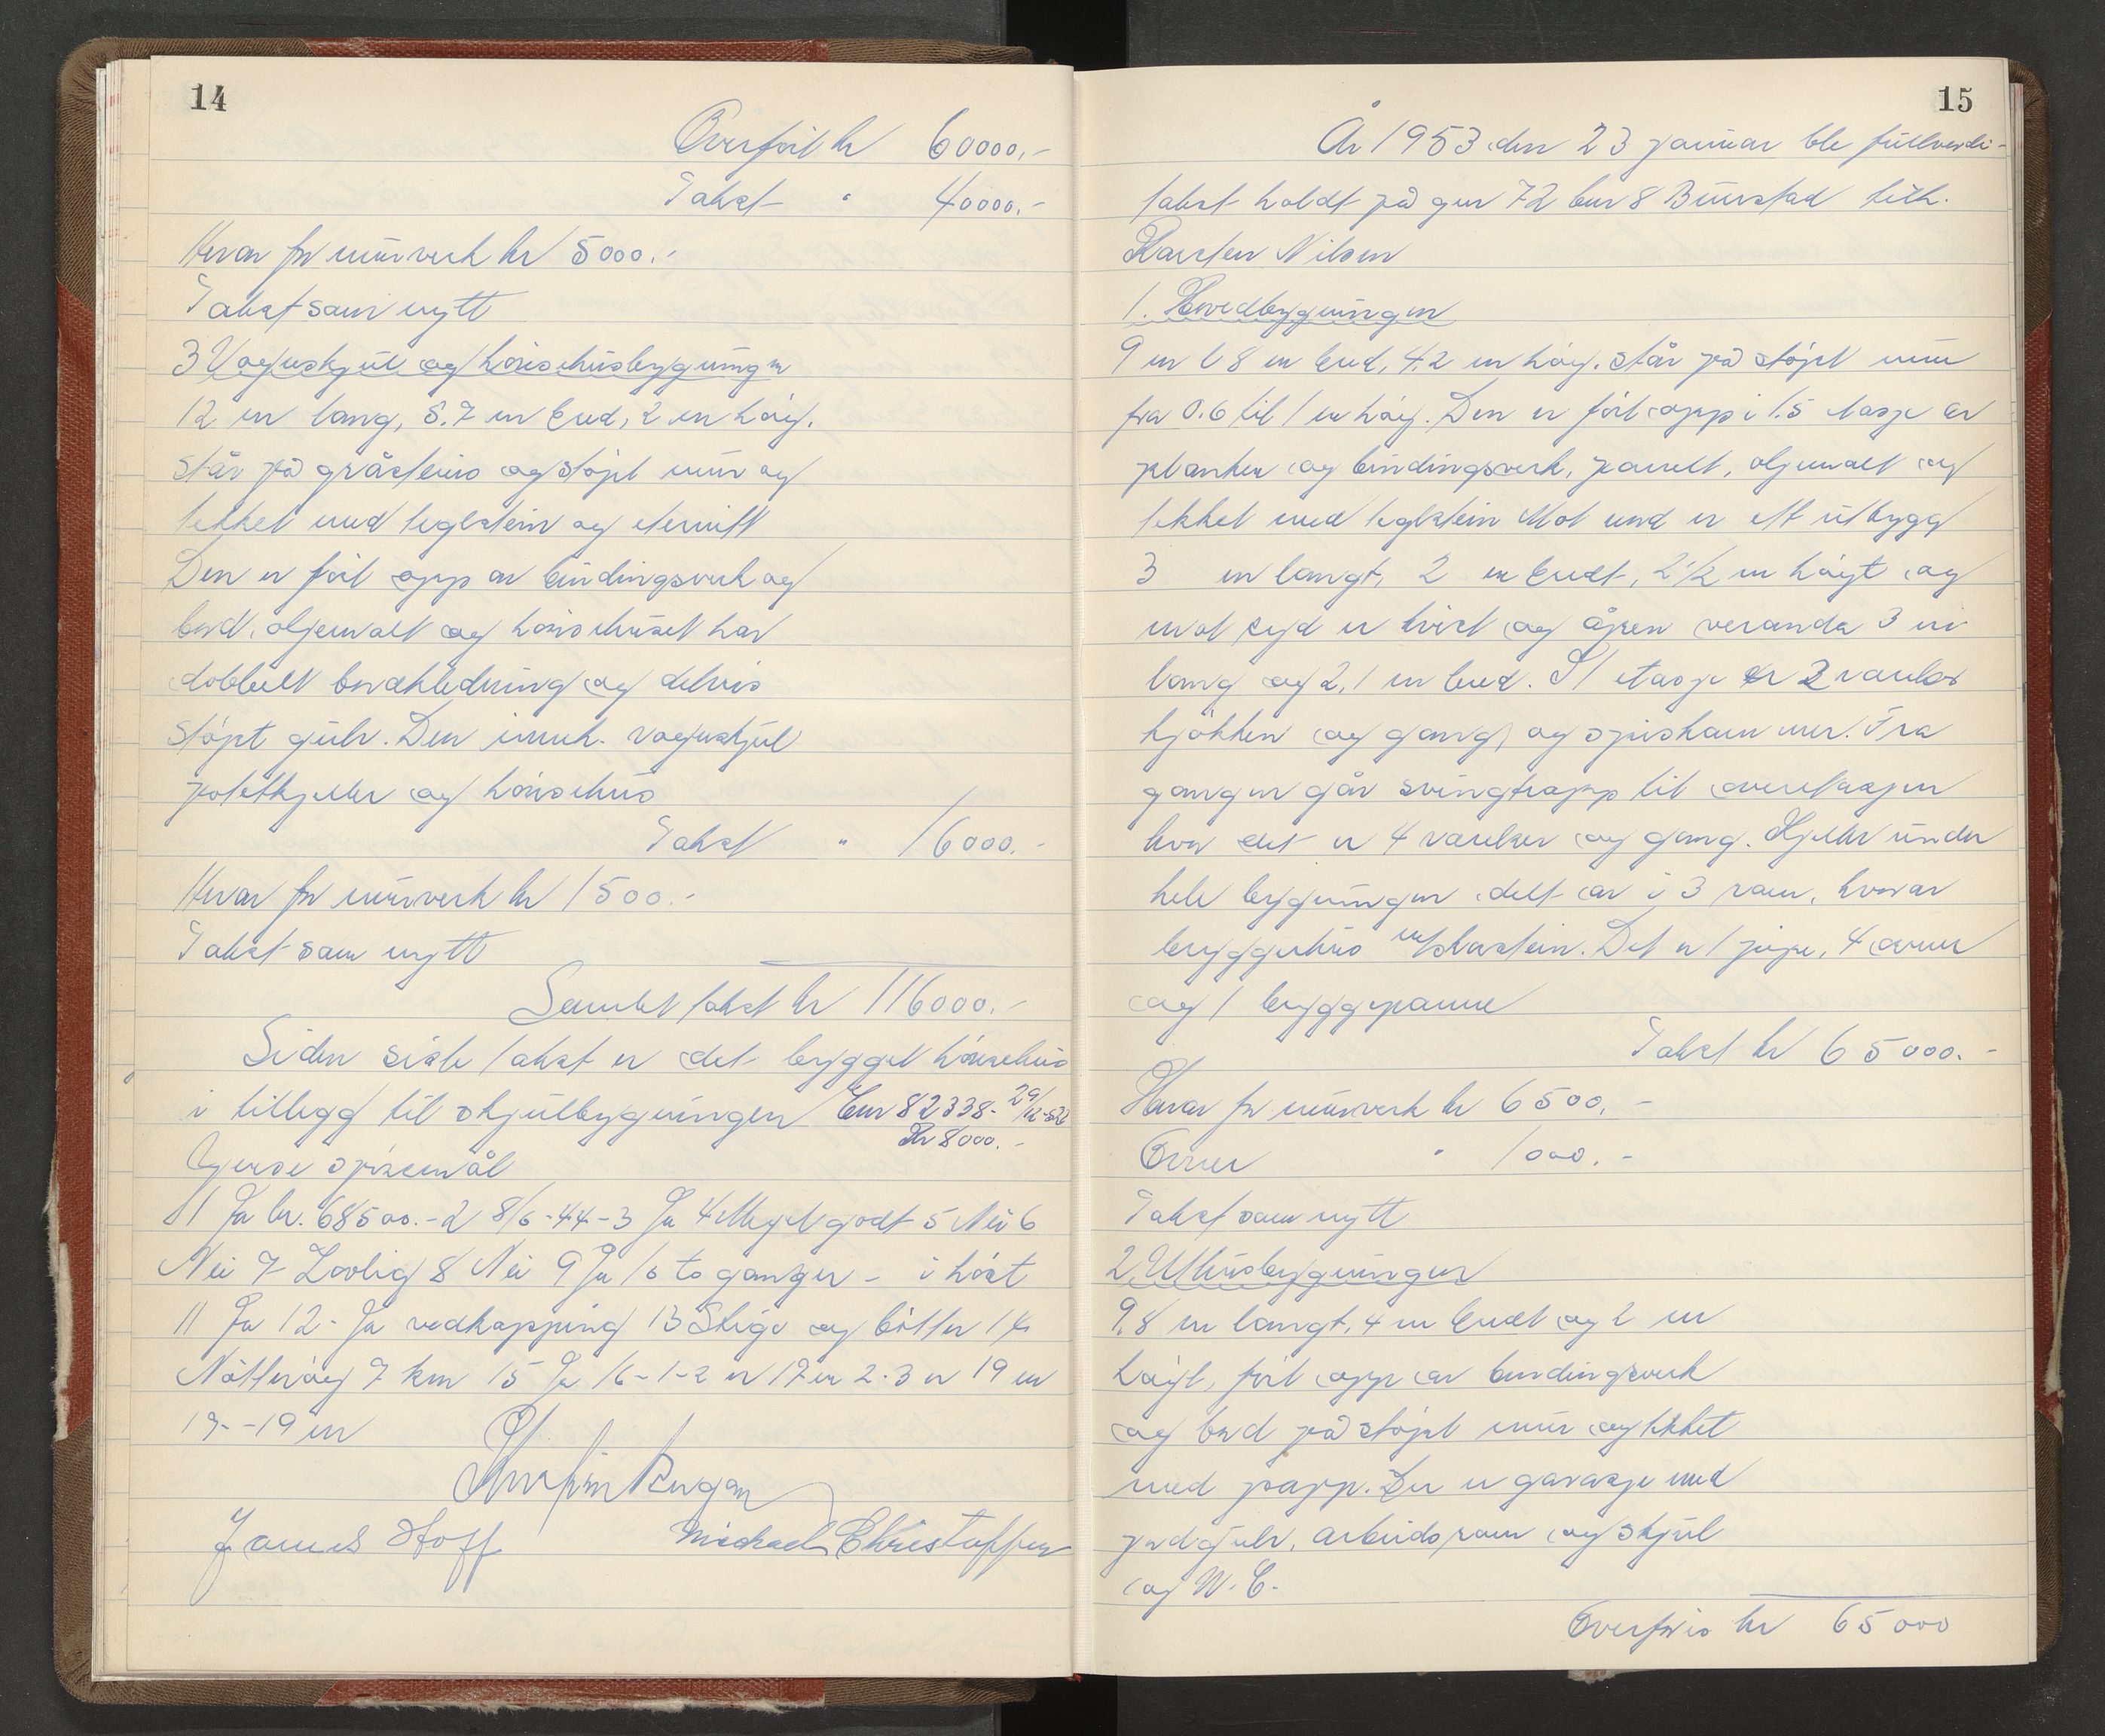 14
Overfört kr 60000.-
Takst " 40000.-
Herav for murverk kr 5000.-
Takst som nytt
3 Vognskjul og hönsehusbygningen
12 m lang, 5.7 m bred, 2 m höy.
står på gråsteins og stöpt mur og
tekket med teglstein og eternitt
Den er fört opp av bindingsverk og
bord, oljemalt og hönsehuset har
dobbelt bordkledning og delvis
stöpt gulv. Den inneh. vognskjul
potetkjeller og hönsehus
Takst " 16000.-
Herav for murverk kr 1500.-
Takst som nytt
Samlet takst kr 116000.-
Siden siste takst er det bygget hönsehus
i tillegg til skjulbygningen Bnr 82338- 29/12-52
Kr 8000.-
Øvrige spörsmål
1 Ja kr. 68500.- 2 8/6-44-3 Ja 4 Meget godt 5 Nei 6
Nei 7 Lovlig 8 Nei 9 Ja 10 to ganger - i höst
11 Ja 12- Ja vedkapping 13 Stige og bötter 14
Nötteröy 7 km 15 Ja 16-1-2 er 17 m 2-3 er 19 m
19 m
James Hoff Michael Christoffersen
15
År 1953 den 23 januar ble fullverdi-
takst holdt på gnr 72 bnr 8 Buerstad tilh.
Karsten Nilsen
1. Hovedbygningen
9 m l 8 m bred, 4.2 m höy. står på stöpt mur
fra 0.6 til 1 m höy. Den er fört opp i 1.5 etasje av
planker og bindingsverk, panelt, oljemalt og
tekket med teglstein Mot nord er ett utbygg
3 m langt, 2 m bredt, 2 1/2 m höyt og
mot syd er kvist og åpen veranda 3 m
lang og 2,1 m bred. I 1 etasje er 2 värelser
kjökken og gang, og spiskammer. Fra
gangen går svingtrapp til overetasjen
hvor det er 4 värelser og gang. Kjeller under
hele bygningen delt av i 3 rom, hvorav
bryggerhus Det er 1 pipe, 4 ovner
og 1 bryggepanne
Takst kr 65000.-
Herav for murverk kr 6500.-
Ovner " 1000.-
Takst som nytt
2 Uthusbygningen
9,8 m langt, 4 m bredt og 2 m
höyt, fört opp av bindingsverk
og bord på stöpt mur og tekket
med papp. Der er garasje med
jordgulv, arbeidsrom og skjul
og W.C.
Overföres kr 65000